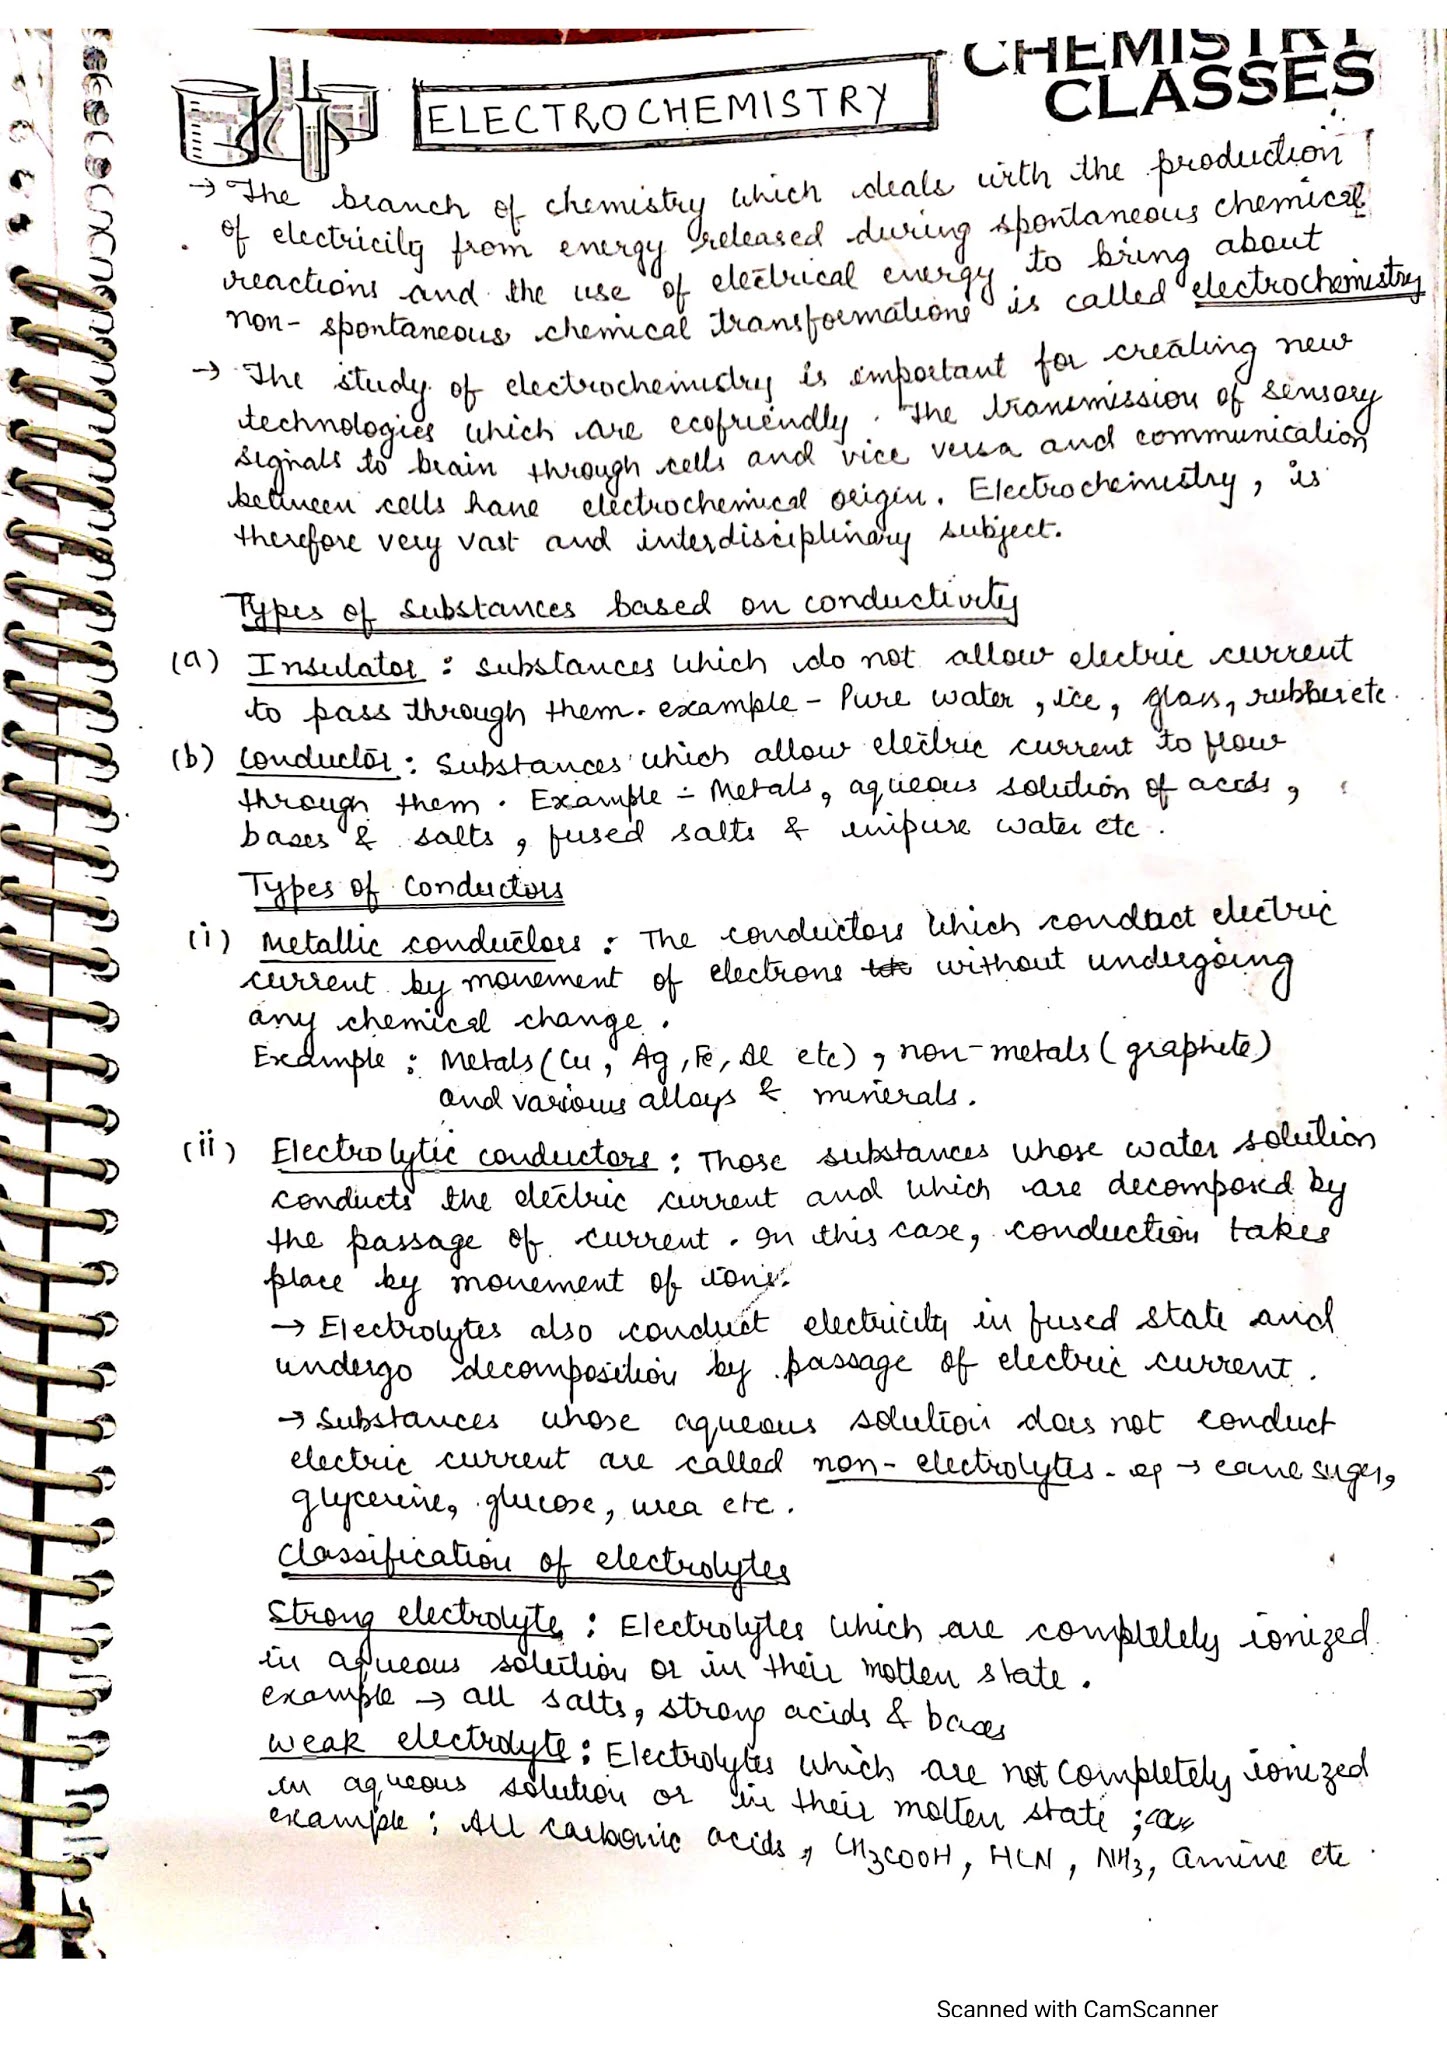 CHEMISTRY
CLASSES
ELECTROCHEMISTRY
→ The branch of chemistry which deals with the production
of electricity from energy released during spontaneous chemical
reactions and the use of electrical energy to bring about
non-spontaneous chemical transformations is called electrochemistry
→ The study of electrochemistry is important for creating new
technologies which are ecofriendly. The transmission of sensory
signals to brain through cells and vice versa and communication
between cells have electrochemical origin. Electrochemistry, is
therefore very vast and interdisciplinary subject.
Types of substances based on conductivity
(a) Insulator : substances which do not allow electric current
to pass through them. example - Pure water, ice, glass, rubber etc.
(b) Conductor : Substances which allow electric current to flow
through them. Example - Metals, aqueous solution of acids,
bases & salts, fused salts & impure water etc.
Types of conductors
(i) Metallic conductors : The conductors which conduct electric
current by movement of electrons without undergoing
any chemical change.
Example : Metals (Cu, Ag, Fe, Al etc), non-metals (graphite)
and various alloys & minerals.
(ii) Electrolytic conductors : Those substances whose water solution
conducts the electric current and which are decomposed by
the passage of current. In this case, conduction takes
place by movement of ions.
→ Electrolytes also conduct electricity in fused state and
undergo decomposition by passage of electric current.
→ Substances whose aqueous solution does not conduct
electric current are called non-electrolytes - eg → cane suger,
glycerine, glucose, urea etc.
Classification of electrolytes
Strong electrolyte : Electrolytes which are completely ionized
in aqueous solution or in their molten state.
example → all salts, strong acids & bases
Weak electrolyte : Electrolytes which are not completely ionized
in aqueous solution or in their molten state ;
example : All carbonic acids, CH3COOH, HCN, NH3, amine etc.
Scanned with CamScanner